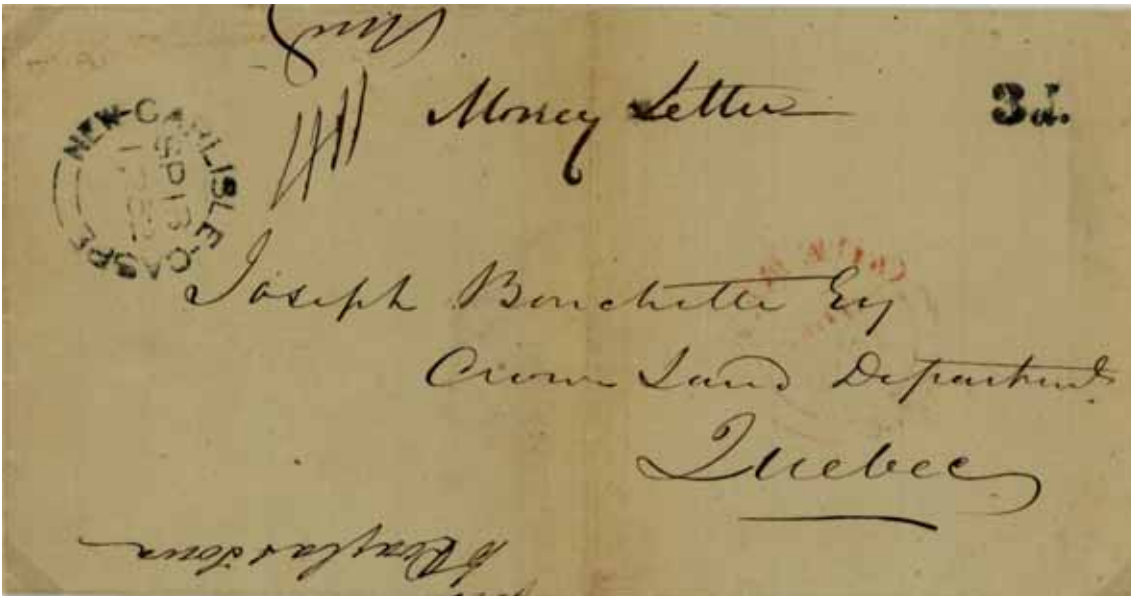 Money Letter
3d.
NEW-CARLISLE-GASPE
SP 13
Joseph Bouchette Esq
Crown Land Department
Quebec
Douglastown